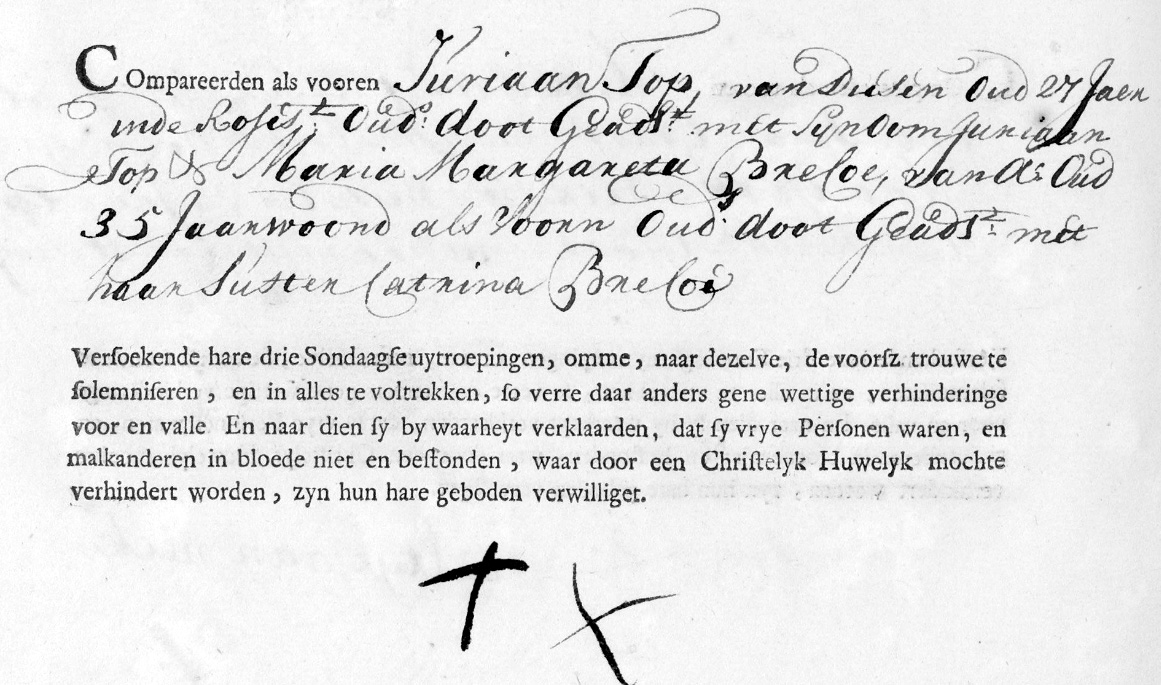 COmpareerden als vooren Juriaan Top, van Dusen Oud 27 Jaer
inde Rosest: Oud:s doot Geadst: met syn Oom Juriaan
Top & Maria Margareta Breloe, van As Oud
35 Jaar woond als Voorn Oud:s doot Geadst: met
haar Suster Catrina Breloe
Verſoekende hare drie Sondaagſe uytroepingen, omme, naar dezelve, de voorſz. trouwe te
ſolemniſeren, en in alles te voltrekken, ſo verre daar anders gene wettige verhinderinge
voor en valle En naar dien ſy by waarheyt verklaarden, dat ſy vrye Perſonen waren, en
malkanderen in bloede niet en beſtonden, waar door een Chriſtelyk Huwelyk mochte
verhindert worden, zyn hun hare geboden verwilliget.